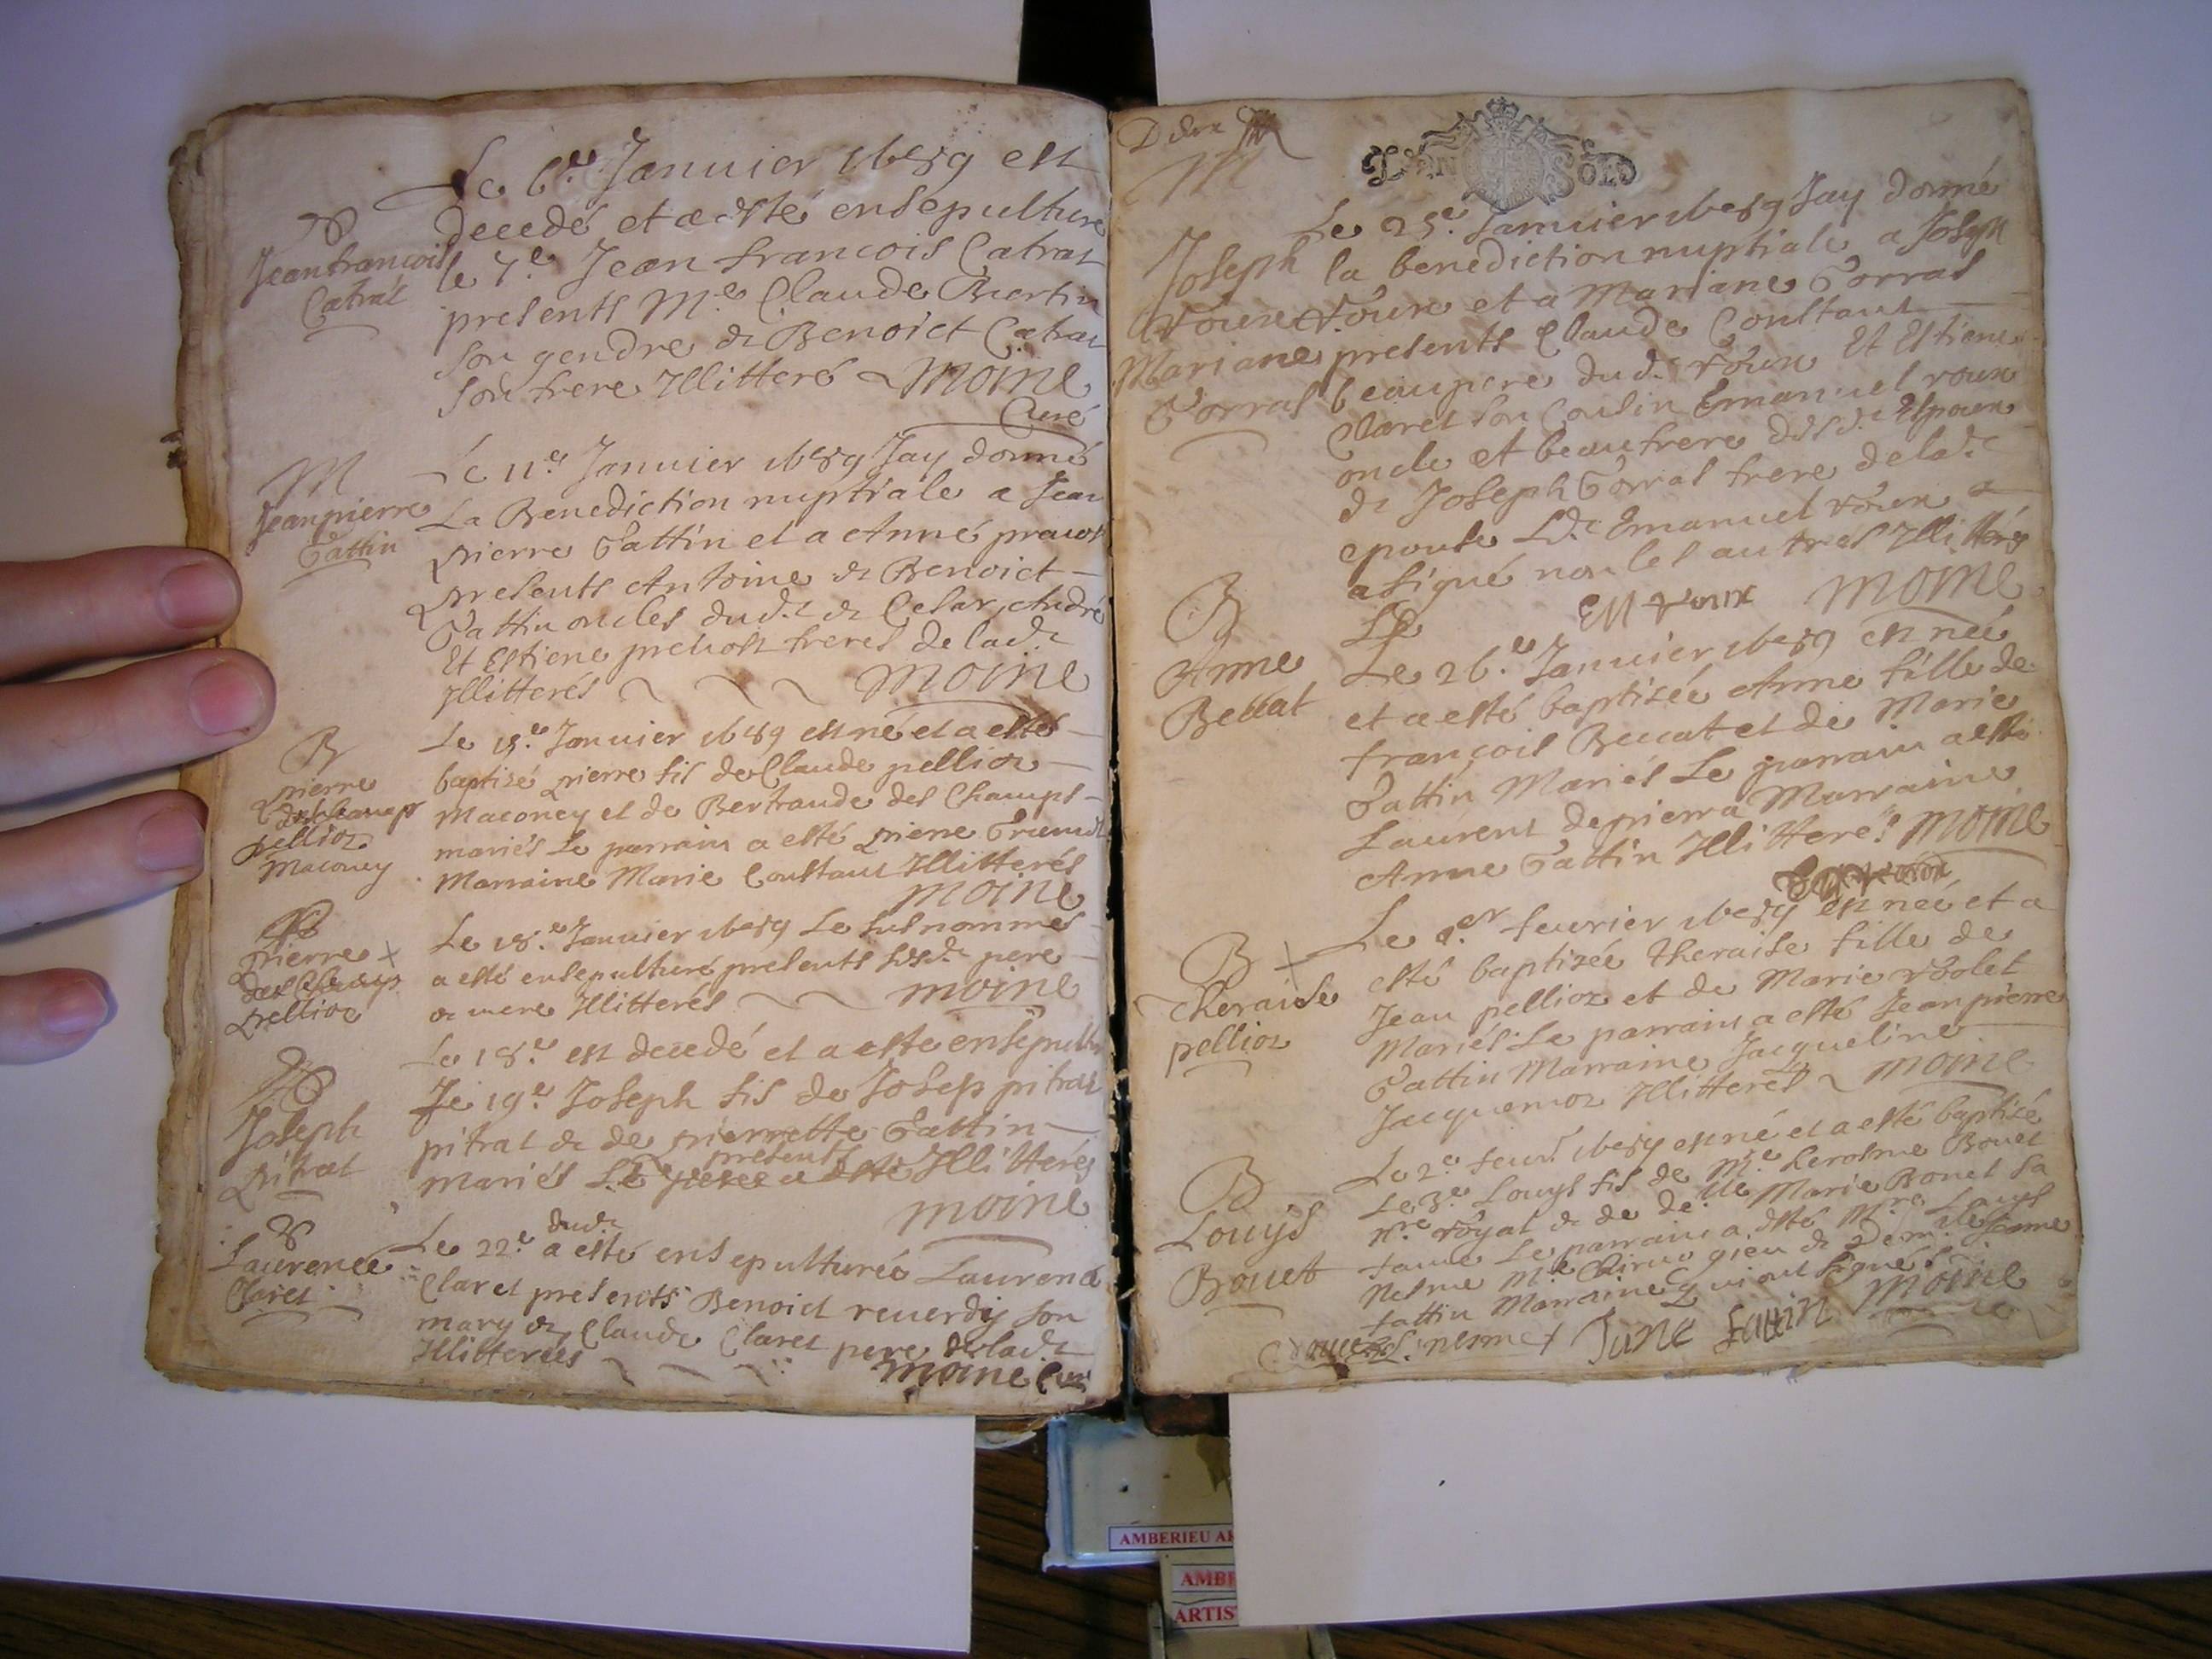 Le 6.e Januier 1689 est
decedé et a esté ensepulturé
Jean francois
Catrat
le 7.e Jean francois Catrat
presents M.e Claude Bertin
son gendre & Benoict Catrat
son frere Illitteré moine
Curé
M
Jean pierre
Tattin
Le 11.e Januier 1689 Jay donné
La Benediction nuptiale a Jean
pierre Tattin et a Anne
presents Antoine & Benoict
Tattin oncles dud.t & Cesar, André
Et Estiene preuost freres de lad.te
Illitterés moine
B
pierre
pellioz
Maconey
Le 15.e Januier 1689 est né et a esté
baptizé pierre fis de Claude pellioz
Maconey et de Bertrande des Champs
mariés Le parrain a esté pierre
Marraine Marie Constant Illitterés
moine
pierre
des Champs
pellioz
Le 18.e Januier 1689 Le susnommé
a esté ensepulturé presents sesd.t pere
& mere Illitterés moine
Joseph
pitrat
Le 18.e est decedé et a esté ensepulturé
le 19.e Joseph fis de Josep pitrat
pitrat & de pierrette Tattin
presents
mariés Illitterés
moine
Laurence
Claret
dud.t
Le 22.e a esté ensepulturée Laurence
Claret presents Benoict reuerdy son
mary & Claude Claret pere de lad.te
Illitterées
moine Curé
M
Joseph
roux
Mariane
Torral
Le 25.e Januier 1689 Jay donné
la benediction nuptiale a Joseph
roux et a Mariane Torral
presents Claude Constant
beaupere dud.t roux Et Estiene
Claret son Cousin Emanuel roux
oncle et beaufrere desd.ts Espoux
& Joseph Torral frere de lad.te
epouse Led.t Emanuel roux
a signé non les autres Illitterés
EM roux moine
B
Anne
Beccat
Le 26.e Januier 1689 est née
et a esté baptisée Anne fille de
francois Beccat et de Marie
Tattin Mariés Le parrain a esté
Laurent depierra Marraine
Anne Tattin Illitterés moine
B
theraise
pellioz
Le 1.er feurier 1689 est née et a
esté baptizée theraise fille de
Jean pellioz et de Marie
Mariés Le parrain a esté Jean pierre
Tattin Marraine Jacqueline
Jacquemoz Illitterés moine
B
Louys
Bouet
Le 2.e feur. 1689 est né et a esté baptisé
Le 3.e Louys fis de M.e herosme Bouet
n.re royal & de de.lle Marie Bonet sa
fame Le parrain a esté M.re Louys
Nesme M.e Chirurgien & Dem.lle Jeanne
fattin Marraine qui ont signés
nesme Jane fattin moine
AMBERIEU
AMB
ARTIS